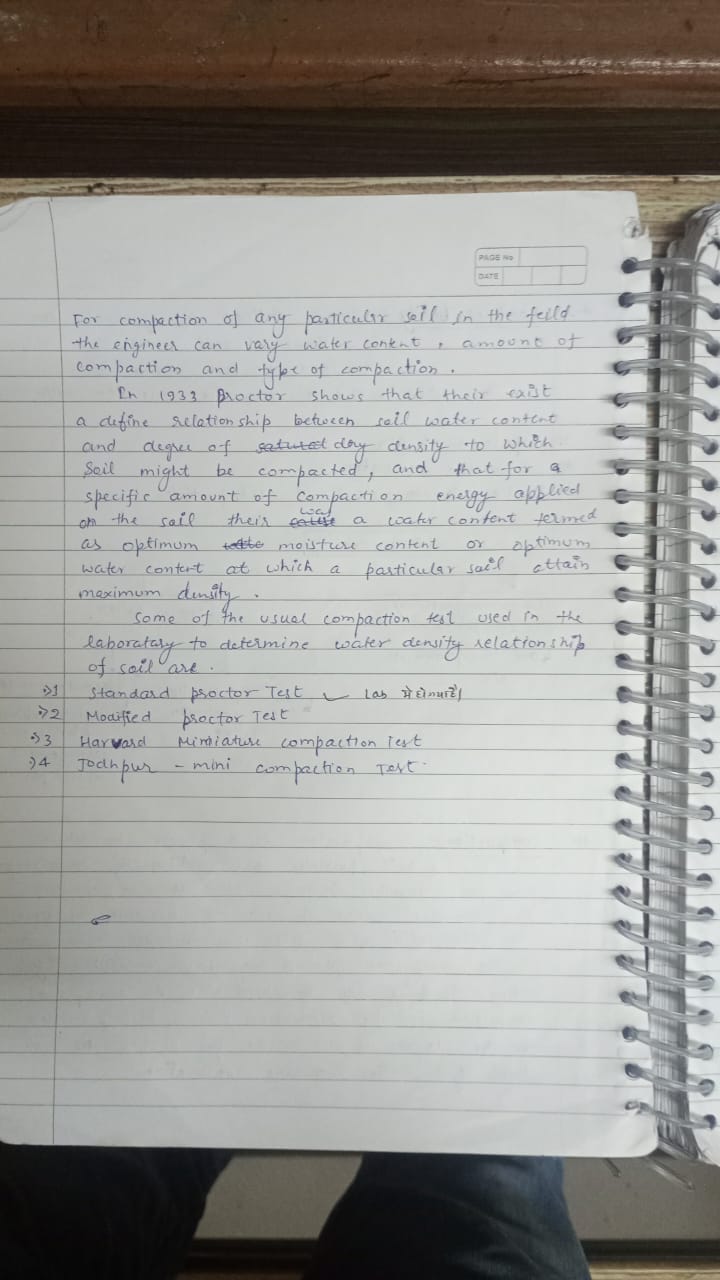 PAGE No
DATE
For compaction of any particular soil in the feild
the engineer can vary water content, amount of
compaction and type of compaction.
In 1933 Proctor shows that their exist
a define relationship between soil water content
and degree of dry density to which
Soil might be compacted, and that for a
specific amount of compaction energy applied
on the soil their was a water content termed
as optimum moisture content or optimum
water content at which a particular soil attain
maximum density.
Some of the usual compaction test used in the
laboratary to determine water density relationship
of soil are.
→1 Standard proctor Test ✓ Lab में होता है।
→2 Modified proctor Test
→3 Harvard Miniature compaction Test
→4 Jodhpur - mini compaction Test.